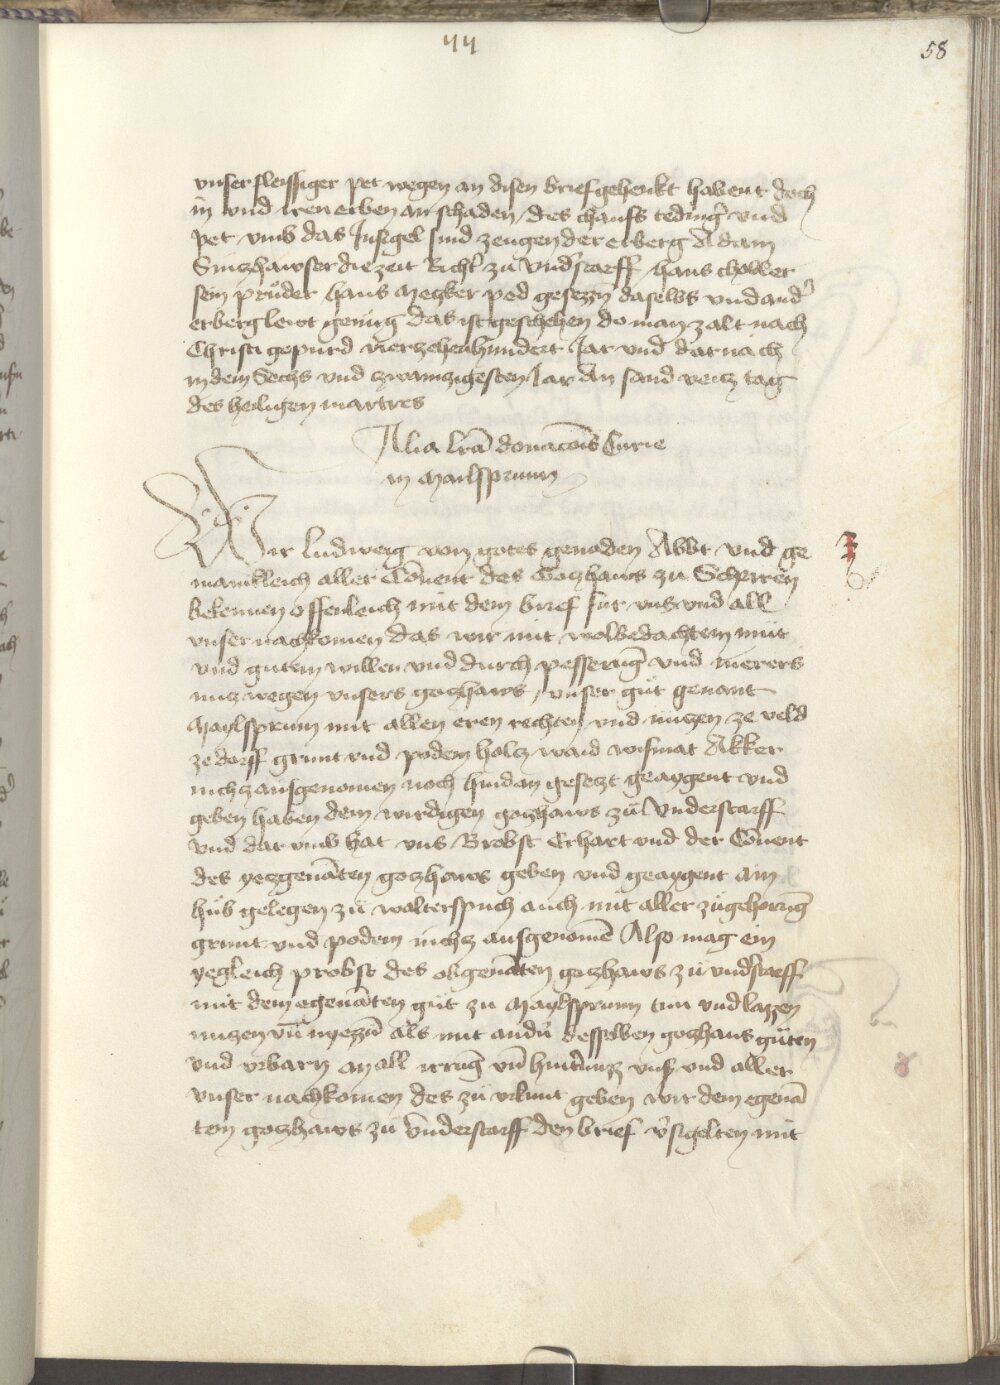 44
58
vnser fleissiger pet wegen an disen brief gehenkt habent doch
in vnd iren erben an schaden / des chaufs teding̃ vnd
pet vmb das Insigel sind zeugen der erberg Adam
Sinczhawser die zeit Richt̃ zu vnd̃starff hans choller
sein průder hans Meczker ped gesezzñ daselbs vnd and̃
erberg lewt genůg das ist geschehen do man zalt nach
Christi gepurd vierzehenhundert Jar vnd darnach
in dem Sechs vnd zwainzigesten Jar An sand veicz tag
des heiligen martres
Alia lrã donacõis Curie
in Mailssprunn
Wir ludweig von gotes genaden Abbt vnd ge
mainkleich aller Cõuent des Goczhaws zu Scheyren
bekennen offenleich mit dem brief fur vns vnd all
vnser nachkomen das wir mit wolbedachtem můt
vnd gutem willen vnd durch pesserũg vnd merers
nucz wegen vnsers goczhaws / vnser gůt genant
Maylssprunn mit allen eren rechten vnd nuczen ze veld
ze dorff grunt vnd podem holcz waid wismat Akker
nichcz ausgenomen noch hindan gesetzt geaygent vnd
geben haben dem wirdigen goczhaws zů Vnderstarff
vnd dar vmb hat vns Brobst Erhart vnd der Cõuent
des yeczgenãten goczhaws geben vnd geaygent ain
hůb gelegen zů walterspuch auch mit aller zůgehorũg
grunt vnd podem nichcz ausgenomẽ Also mag ein
yegleich probst des obgenãten goczhaws zů vnd̃starff
mit dem egenãten gůt zu Maylssprunn tun vnd lazzen
nuczen vñ nyezzñ als mit and̃n desselben goczhaus gůten
vnd vrbarn an all irrũg vñ hind̃nuzz vnser vnd aller
vnser nachkomen des zů vrkunt geben wir dem egenã
tem goczhaws zů Vnderstarff den brief ṽsigelten mit